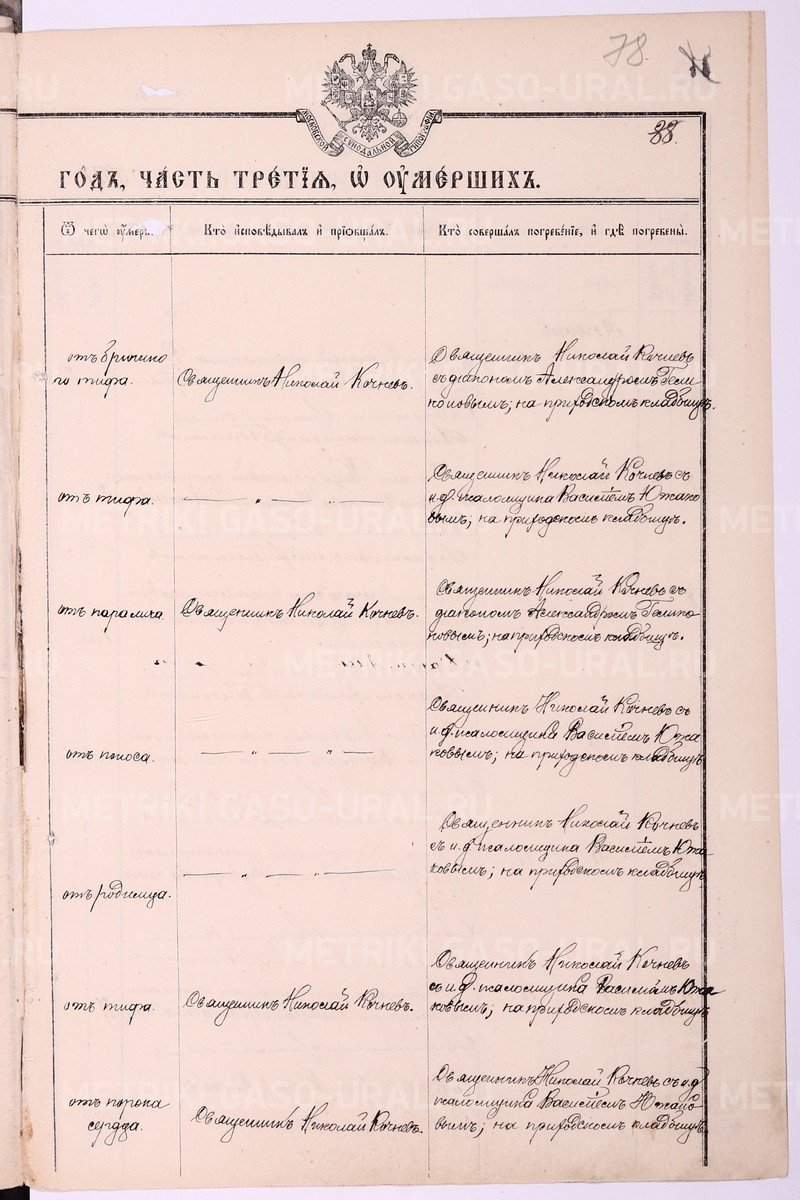 78.
88.
МОСКОВСКОЙ СУНОДАЛЬНОЙ ТИПОГРАФIИ
ГОДЪ, ЧАСТЬ ТРЕТIЯ, Ѿ ОУМЕРШИХЪ.
Ѿ чегѡ
Кто исповѣдывалъ и прiобщалъ.
Кто совершалъ погребенiе, и гдѣ погребены.
отъ брюшно
го тифа.
Священникъ Николай Кочневъ.
Священникъ Николай Кочневъ
съ дiакономъ Александромъ
на приходскомъ кладбищѣ.
отъ тифа.
— „ — —
Священникъ Николай Кочневъ съ
и.д. псаломщика Василiемъ Южако
вымъ; на приходскомъ кладбищѣ.
отъ паралича.
Священникъ Николай Кочневъ.
Священникъ Николай Кочневъ съ
дiакономъ Александромъ
ковымъ; на приходскомъ кладбищѣ.
отъ поноса.
— „ — „ —
Священникъ Николай Кочневъ съ
и.д. псаломщика Василiемъ Южа
ковымъ; на приходскомъ кладбищѣ
отъ родимца.
— „ — „ —
Священникъ Николай Кочневъ
съ и.д. псаломщика Василiемъ Южа
ковымъ; на приходскомъ кладбищѣ
отъ тифа.
Священникъ Николай Кочневъ.
Священникъ Николай Кочневъ
съ и.д. псаломщика Василiемъ Южа
ковымъ; на приходскомъ кладбищѣ
отъ порока
сердца.
Священникъ Николай Кочневъ.
Священникъ Николай Кочневъ съ и.д.
псаломщика Василiемъ Южако
вымъ; на приходскомъ кладбищѣ
METRIKI.GASO-URAL.RU